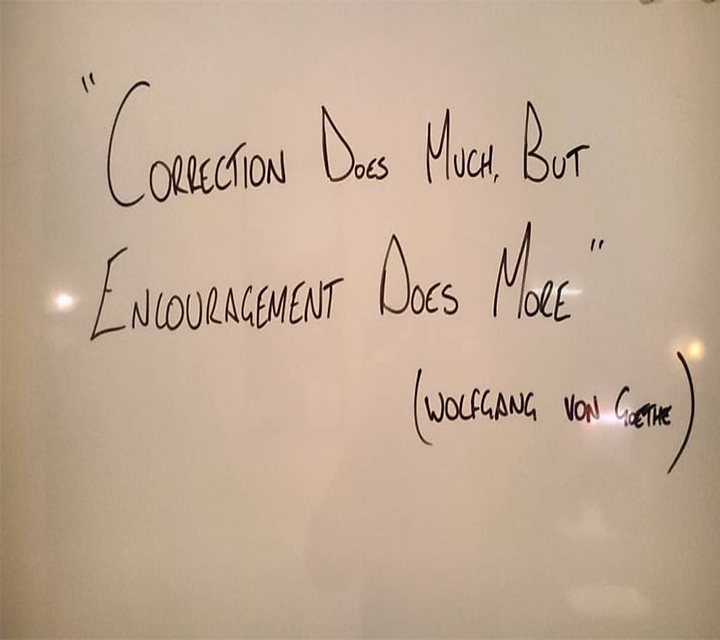 "Correction Does Much, But
Encouragement Does More"
(Wolfgang von Goethe)